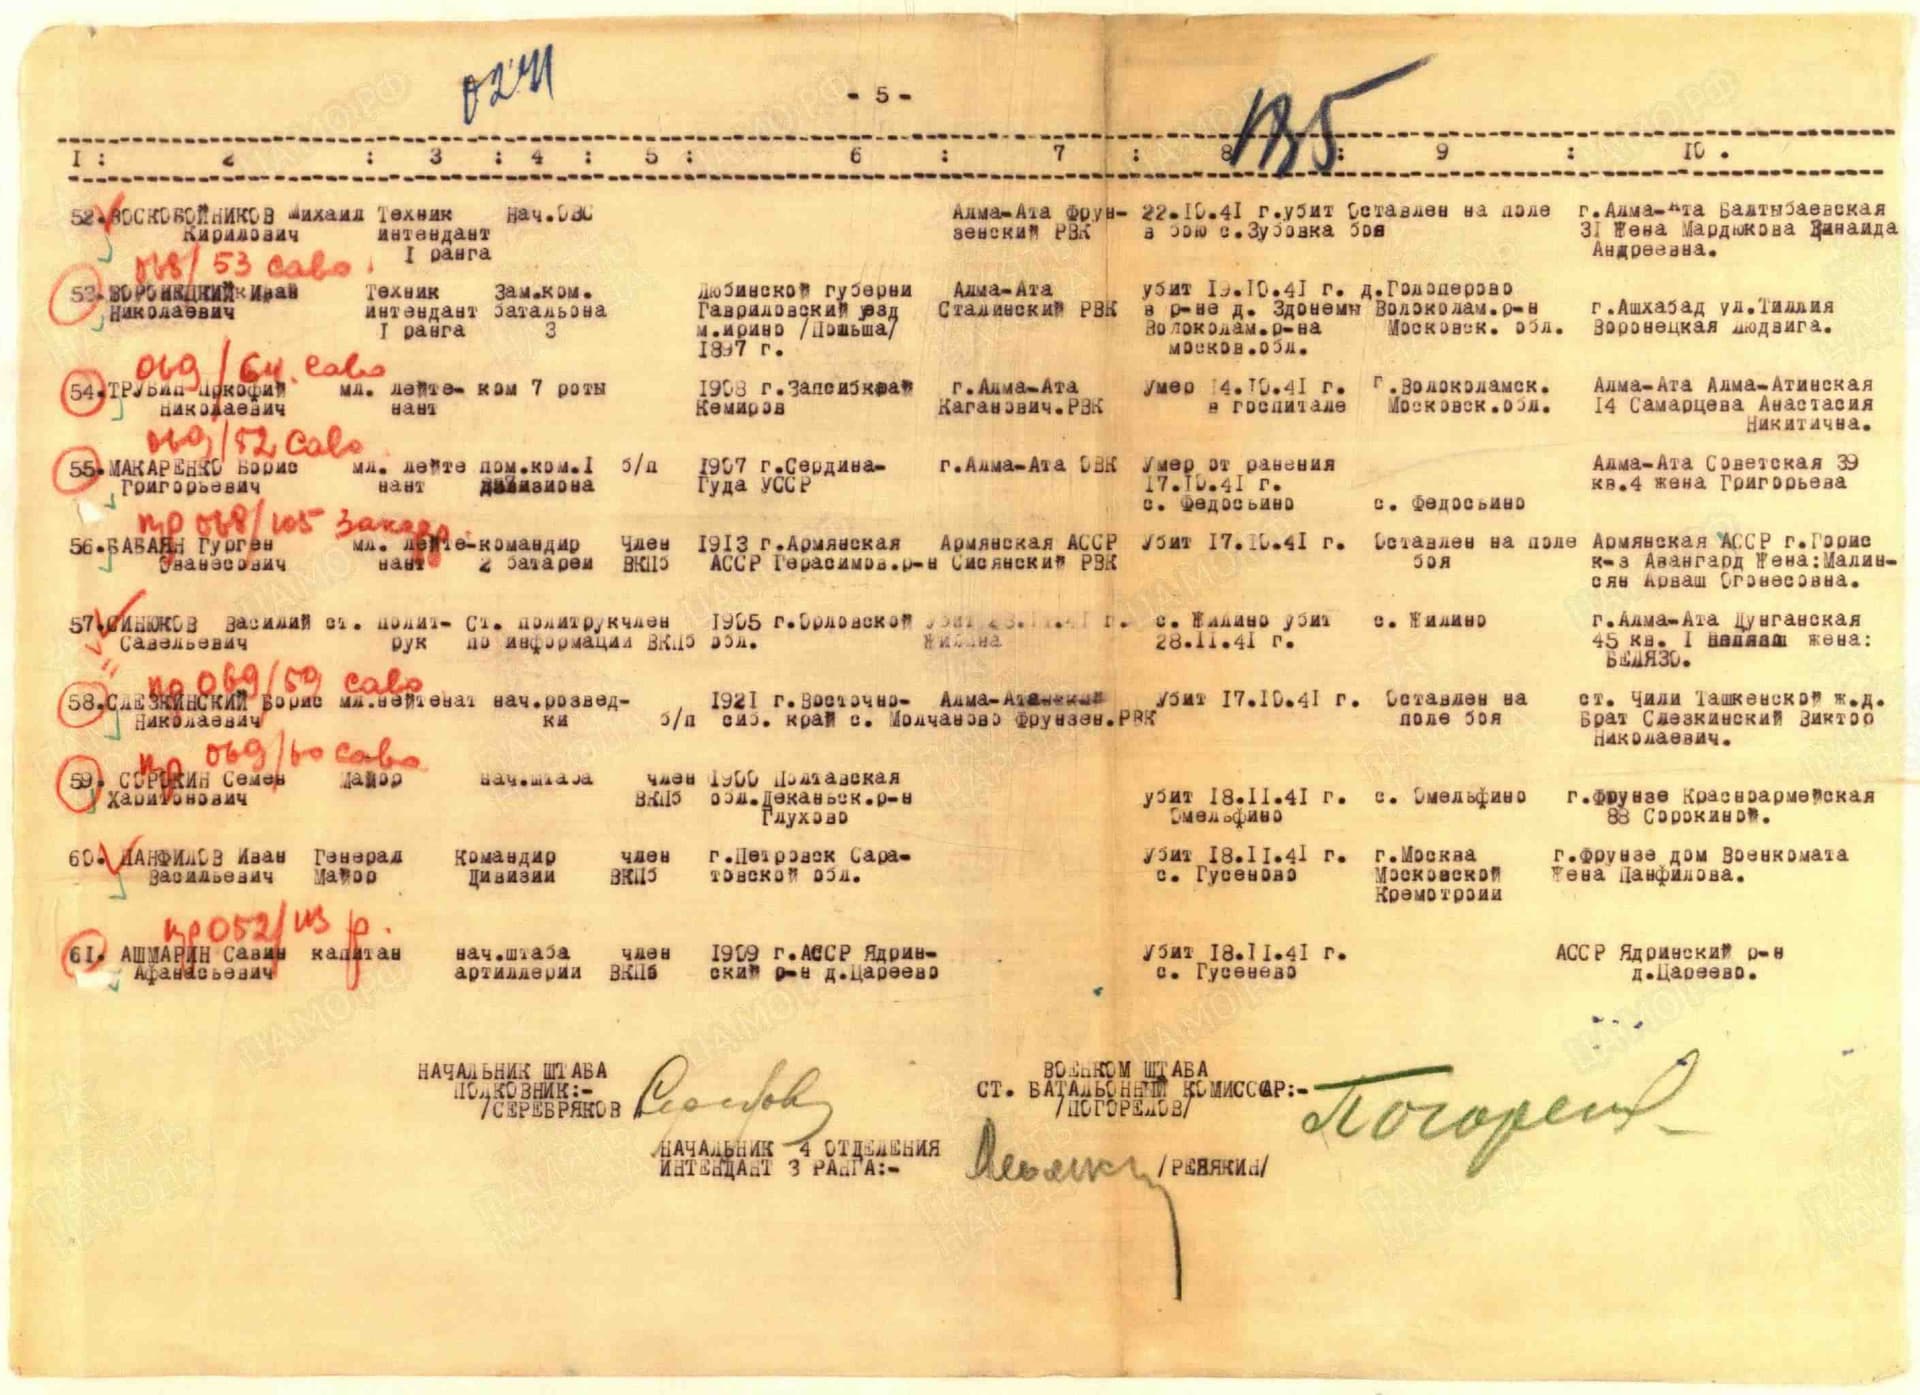 - 5 -
I : 2 : 3 : 4 : 5 : 6 : 7 : 8 : 9 : 10 .
52. ВОСКОБОЙНИКОВ Михаил Техник Нач.ОВС Алма-Ата Фрун- 22.10.41 г.убит Оставлен на поле г.Алма-Ата Балтыбаевская
Кирилович интендант зенский РВК в бою с.Зубовка боя 31 Жена Мардюкова Зинаида
I ранга Андреевна.
068/53 саво
53. ВОРОНЕЦКИЙ Иван Техник Зам.ком. Люблинской губерни Алма-Ата убит 19.10.41 г. д.Голоперово
Николаевич интендант батальона Гавриловский уезд Сталинский РВК в р-не д. Здонемы Волоколам.р-н г.Ашхабад ул.Тиллия
I ранга 3 м.ирино /Польша/ Волоколам.р-на Московск. обл. Воронецкая Людвига.
1897 г. москов.обл.
069/64. саво
54. ТРУБИН Прокофий мл. лейте- ком 7 роты 1908 г.Запсибкрай г.Алма-Ата Умер 14.10.41 г. г.Волоколамск. Алма-Ата Алма-Атинская
Николаевич нант Кемиров Каганович.РВК в госпитале Московск.обл. 14 Самарцева Анастасия
Никитична.
069/52 саво
55. МАКАРЕНКО Борис мл. лейте пом.ком.I б/п 1907 г.Сердина- г.Алма-Ата ОВК Умер от ранения Алма-Ата Советская 39
Григорьевич нант дивизиона Гуда УССР 17.10.41 г. кв.4 жена Григорьева
с. Федосьино с. Федосьино
пр 068/105
56. БАБАЯН Гурген мл. лейте- командир Член 1913 г.Армянская Армянская АССР Убит 17.10.41 г. Оставлен на поле Армянская АССР г.Горис
Ованесович нант 2 батареи ВКПб АССР Герасимов.р-н Сисянский РВК боя к-з Авангард Жена:Малин-
сян Арваш Огонесовна.
57. СИНЮКОВ Василий ст. полит- Ст. политрук член 1905 г.Орловской с. Жилино убит с. Жилино г.Алма-Ата Дунганская
Савельевич рук по информации ВКПб обл. 28.11.41 г. 45 кв. I жена:
БЕЛЯЗО.
пр 069/59 саво
58. СЛЕЗКИНСКИЙ Борис мл.лейтенат нач.розвед- 1921 г.Восточно- Алма-Ата Убит 17.10.41 г. Оставлен на ст. Чили Ташкенской ж.д.
Николаевич ки б/п сиб. край с. Молчаново Фрунзен.РВК поле боя Брат Слезкинский Виктор
Николаевич.
пр 069/60 саво
59. СОРОКИН Семен Майор нач.штаба член 1900 Полтавская
Харитонович ВКПб обл.Деканьск.р-н убит 18.11.41 г. с. Омельфино г.Фрунзе Красноармейская
Глухово Омельфино 88 Сорокиной.
60. ПАНФИЛОВ Иван Генерал Командир член г.Петровск Сара- Убит 18.11.41 г. г.Москва г.Фрунзе дом Военкомата
Васильевич Майор Дивизии ВКПб товской обл. с. Гусеново Московской Жена Панфилова.
Кремотроии
пр 052/113 р.
61. АШМАРИН Савин капитан нач.штаба член 1909 г.АССР Ядрин- Убит 18.11.41 г. АССР Ядринский р-н
Афанасьевич артиллерии ВКПб ский р-н д.Цареево с. Гусенево д.Цареево.
НАЧАЛЬНИК ШТАБА ВОЕНКОМ ШТАБА
ПОЛКОВНИК:- СТ. БАТАЛЬОННЫЙ КОМИССАР:-
/СЕРЕБРЯКОВ /ПОГОРЕЛОВ/
НАЧАЛЬНИК 4 ОТДЕЛЕНИЯ
ИНТЕНДАНТ 3 РАНГА:- /РЕНЯКИН/